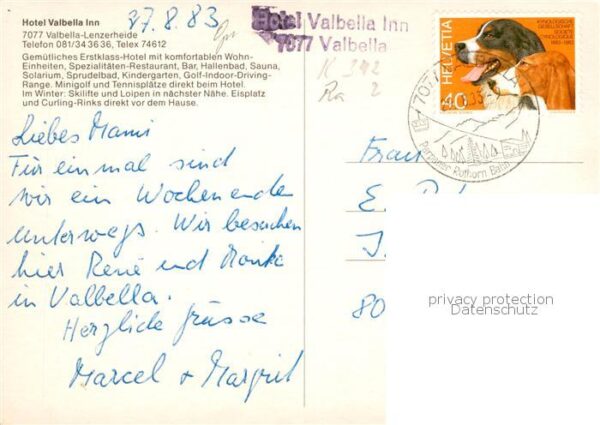 Hotel Valbella Inn
7077 Valbella-Lenzerheide
Telefon 081/34 36 36, Telex 74612
Gemütliches Erstklass-Hotel mit komfortablen Wohn-
Einheiten, Spezialitäten-Restaurant, Bar, Hallenbad, Sauna,
Solarium, Sprudelbad, Kindergarten, Golf-Indoor-Driving-
Range. Minigolf und Tennisplätze direkt beim Hotel.
Im Winter: Skilifte und Loipen in nächster Nähe. Eisplatz
und Curling-Rinks direkt vor dem Hause.
27.8.83
Liebes Mami
Für einmal sind
wir ein Wochenende
unterwegs. Wir besuchen
hier René und Monika
in Valbella.
Herzliche Grüsse
Marcel + Margrit
Hotel Valbella Inn
7077 Valbella
K 342
Ra 2
KYNOLOGISCHE
GESELLSCHAFT
SOCIETE
CYNOLOGIQUE
1883-1983
HELVETIA
40
7077
Parpaner Rothorn Bahn
Frau
E.
80
privacy protection
Datenschutz